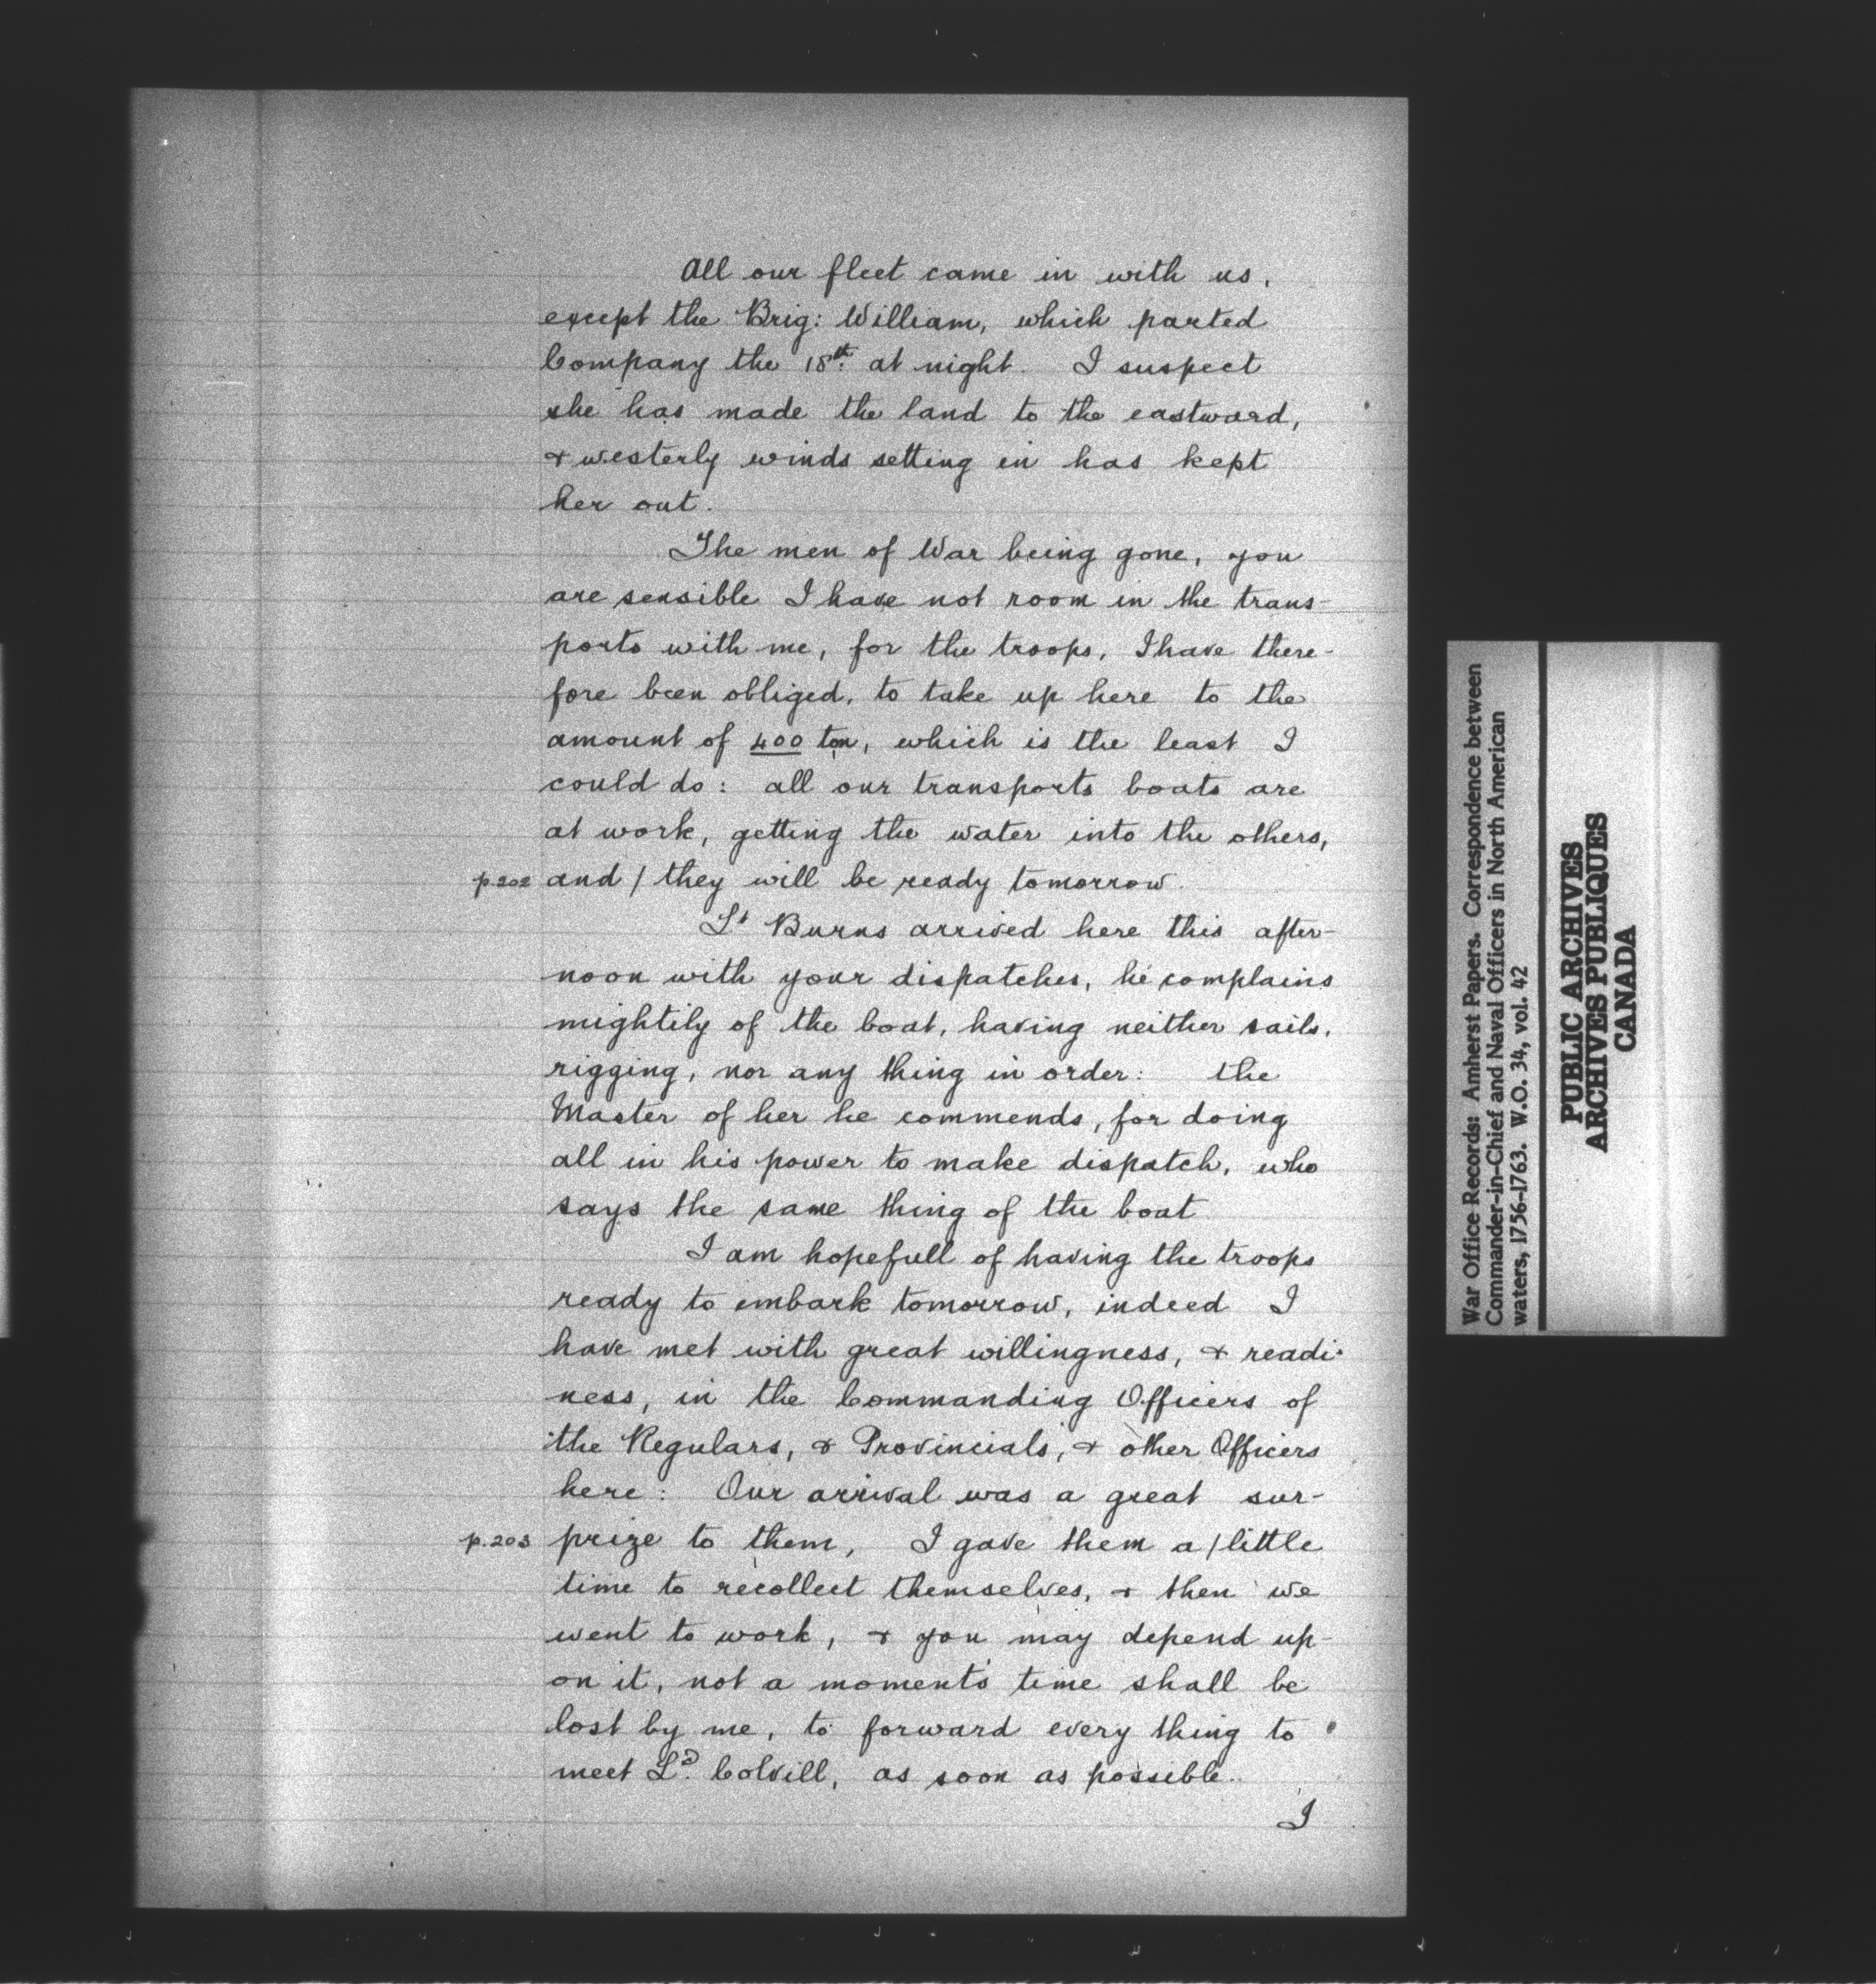 All our fleet came in with us,
except the Brig: William, which parted
Company the 18th. at night. I suspect
she has made the land to the eastward,
& westerly winds setting in has kept
her out.
The men of War being gone, you
are sensible I have not room in the trans-
ports with me, for the troops, I have there-
fore been obliged, to take up here to the
amount of 400 ton, which is the least I
could do: all our transports boats are
at work, getting the water into the others,
p.202 and / they will be ready tomorrow.
Lt Burns arrived here this after-
noon with your dispatches, he complains
mightily of the boat, having neither sails,
rigging, nor any thing in order: the
Master of her he commends, for doing
all in his power to make dispatch, who
says the same thing of the boat
I am hopefull of having the troops
ready to embark tomorrow, indeed I
have met with great willingness, & readi-
ness, in the Commanding Officers of
the Regulars, & Provincials, & other Officers
here: Our arrival was a great sur-
p.203 prize to them, I gave them a / little
time to recollect themselves, & then we
went to work, & you may depend up-
on it, not a moment's time shall be
lost by me, to forward every thing to
meet Ld. Colvill, as soon as possible.
I
War Office Records: Amherst Papers. Correspondence between
Commander-in-Chief and Naval Officers in North American
waters, 1756-1763. W.O. 34, vol. 42
PUBLIC ARCHIVES
ARCHIVES PUBLIQUES
CANADA